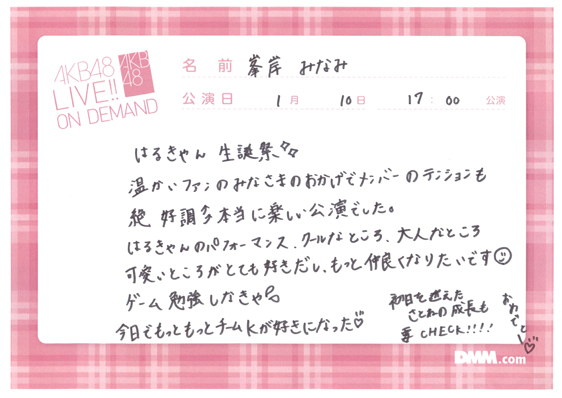 AKB48
LIVE!!
ON DEMAND
AKB
48
名前 峯岸 みなみ
公演日 1月 10日 17:00 公演
はるきゃん 生誕祭
温かいファンのみなさまのおかげでメンバーのテンションも
絶好調↗本当に楽しい公演でした。
はるきゃんのパフォーマンス、クールなところ、大人なところ
可愛いところがとても好きだし、もっと仲良くなりたいです☺
ゲーム勉強しなきゃ
今日でもっともっとチームKが好きになった♡
初日を迎えた
さとねの成長も
要CHECK!!!!
おわでとー♡
DMM.com